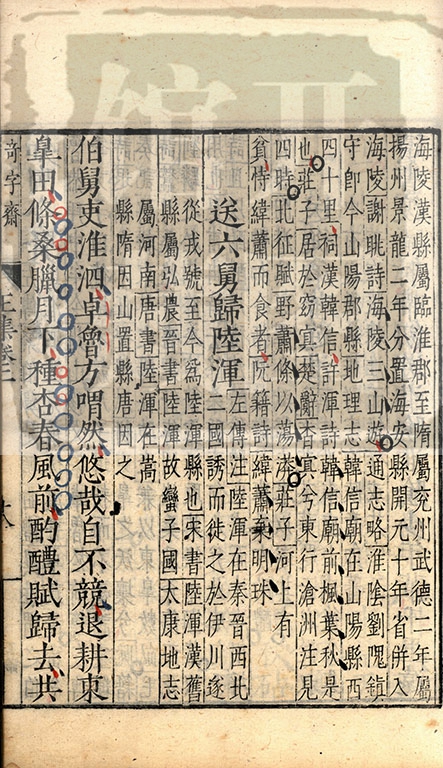 海陵漢縣屬臨淮郡至晉屬兗州武德二年屬
揚州景龍二年分置海安縣開元十年省併入
海陵謝朓詩海陵三山游通志略淮陰劉隗鎮
守卽今山陽郡縣地理志韓信廟在山陽縣西
四十里祠漢韓信許渾詩韓信廟前楓葉秋是
也莊子居於窈冥楚辭杳冥兮東行滄洲注見
四時北征賦野蕭條以莽蕩莊子河上有
貧恃緯蕭而食者阮籍詩緯蕭棄明珠
送六舅歸陸渾
左傳注陸渾在秦晉西北
二國誘而徙之於伊川遂
從戎號至今為陸渾縣也宋書陸渾漢舊
縣屬弘農晉書陸渾故蠻子國太康地志
屬河南唐書陸渾在嵩
縣隋因山置縣唐因之
伯舅吏淮泗卓魯方喟然悠哉自不競退耕東
皐田條桑臘月下種杏春風前酌醴賦歸去共
奇字齋